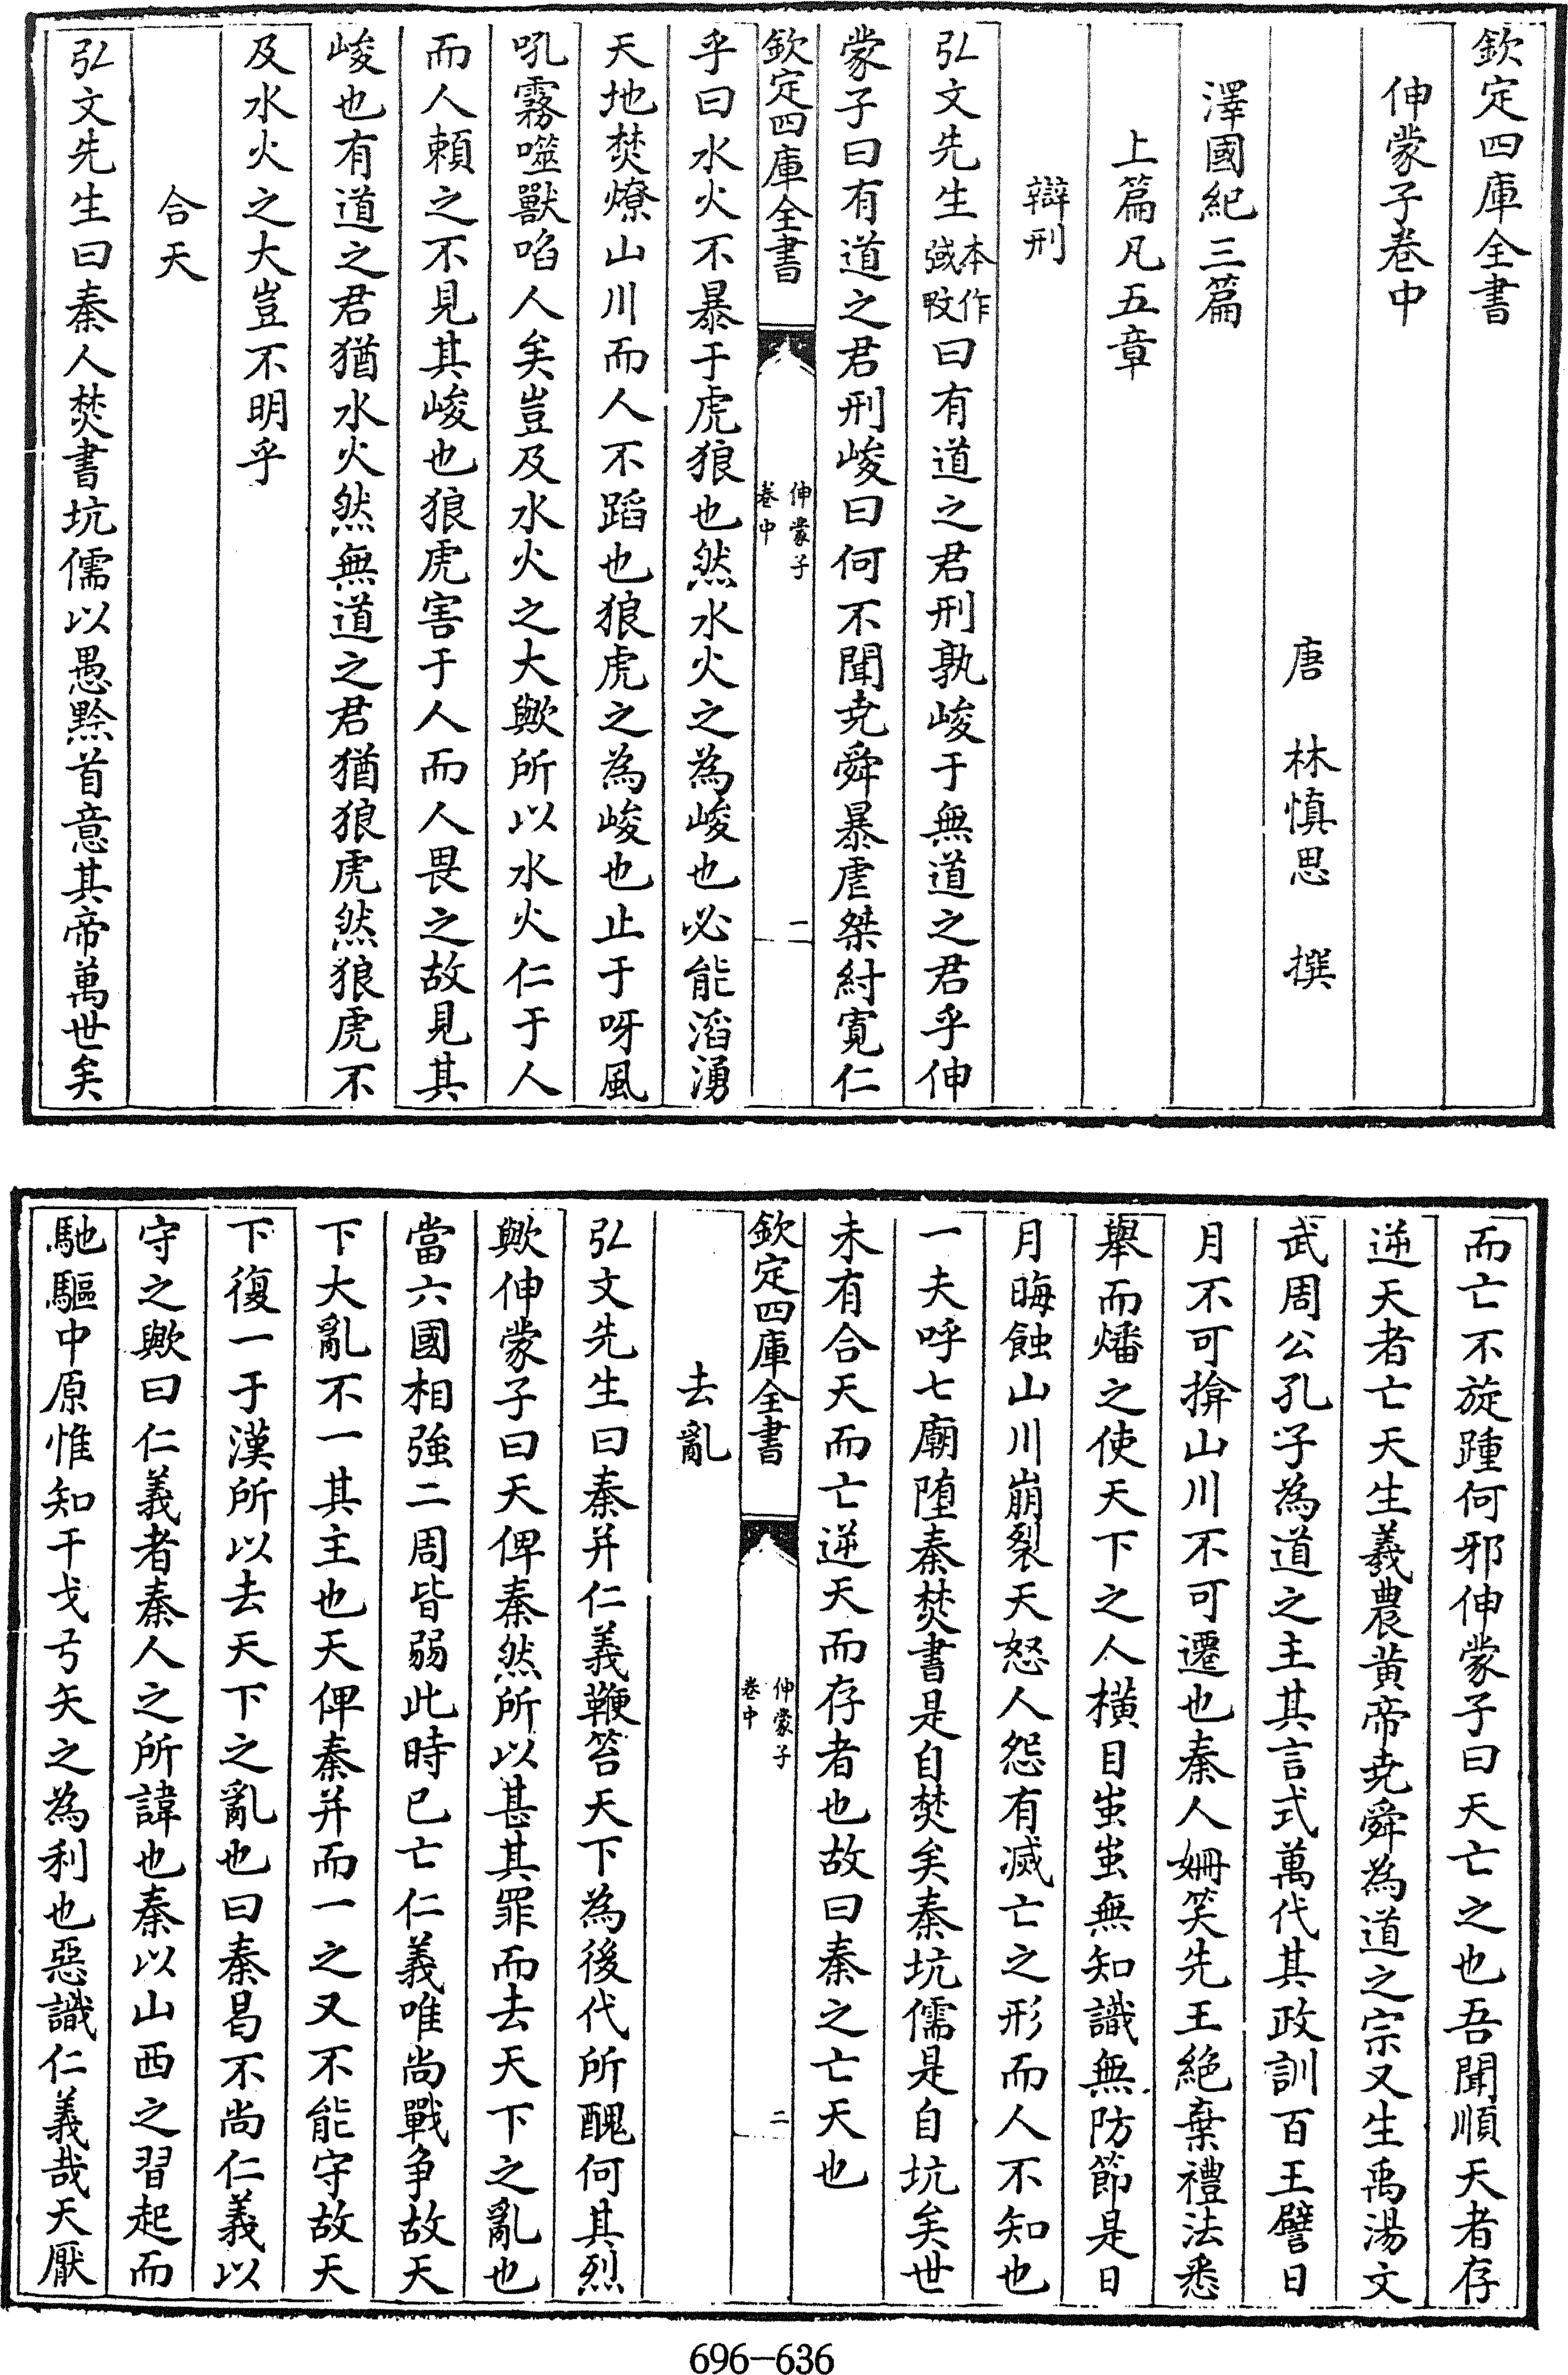 欽定四庫全書
伸蒙子卷中
唐　林慎思　撰
澤國紀三篇
上篇凡五章
辯刑
弘文先生本作弢𢽾曰有道之君刑孰峻于無道之君乎伸
蒙子曰有道之君刑峻曰何不聞堯舜暴虐桀紂寛仁
欽定四庫全書
伸蒙子
卷中
一
乎曰水火不暴于虎狼也然水火之為峻也必能滔湧
天地焚燎山川而人不蹈也狼虎之為峻也止于呀風
吼霧噬獸啗人矣豈及水火之大歟所以水火仁于人
而人頼之不見其峻也狼虎害于人而人畏之故見其
峻也有道之君猶水火然無道之君猶狼虎然狼虎不
及水火之大豈不明乎
合天
弘文先生曰秦人焚書坑儒以愚黔首意其帝萬世矣
而亡不旋踵何邪伸蒙子曰天亡之也吾聞順天者存
逆天者亡天生羲農黄帝堯舜為道之宗又生禹湯文
武周公孔子為道之主其言式萬代其政訓百王譬日
月不可揜山川不可遷也秦人姍笑先王絶棄禮法悉
舉而燔之使天下之人橫目蚩蚩無知識無防節是日
月晦蝕山川崩裂天怒人怨有滅亡之形而人不知也
一夫呼七廟墮秦焚書是自焚矣秦坑儒是自坑矣世
未有合天而亡逆天而存者也故曰秦之亡天也
欽定四庫全書
伸蒙子
卷中
二
去亂
弘文先生曰秦并仁義鞭笞天下為後代所醜何其烈
歟伸蒙子曰天俾秦然所以甚其罪而去天下之亂也
當六國相強二周皆弱此時已亡仁義唯尚戰爭故天
下大亂不一其主也天俾秦并而一之又不能守故天
下復一于漢所以去天下之亂也曰秦曷不尚仁義以
守之歟曰仁義者秦人之所諱也秦以山西之習起而
馳驅中原惟知干戈弓矢之為利也惡識仁義哉天厭
696-636